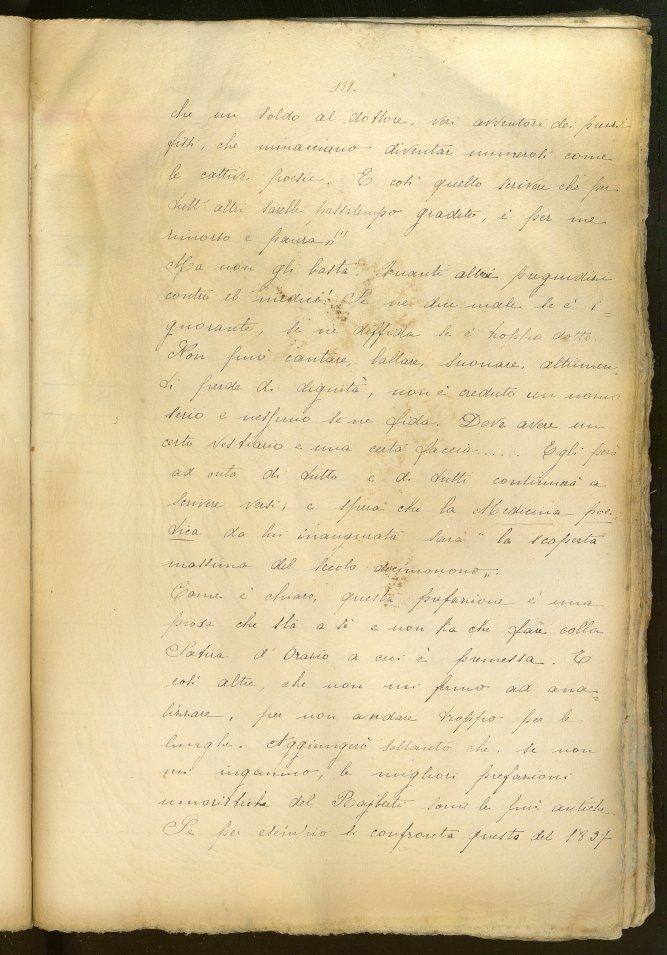 -139-
che un soldo al dottore, veri avventori dei prezzi
fissi, che minacciano diventar numerosi come
le cattive poesie. E così quello scrivere che per
tutt'altri sarebbe passatempo gradito, è per me
rimorso e paura„!!
Ma non gli basta. Quanti altri pregiudizi
contro il medico! Se ne dice male se è i=
gnorante, se ne diffida se è troppo dotto.
Non può cantare, ballare, suonare, altrimen-
ti perde di dignità, non è creduto un uomo
serio e nessuno se ne fida. Deve avere un
certo vestiario e una certa faccia...... Egli però
ad onta di tutto e di tutti continuerà a
scrivere versi, e spera che la Medicina poe-
tica da lui inaugurata sarà "la scoperta
massima del secolo decimonono„.
Come è chiaro, questa prefazione è una
prosa che sta a sè e non ha che fare colla
Satira d'Orazio a cui è premessa. E
così altre, che non mi fermo ad ana-
lizzare, per non andare troppo per le
lunghe. Aggiungerò soltanto che, se non
mi inganno, le migliori prefazioni
umoristiche del Rajberti sono le più antiche.
Se per esempio si confronta questa del 1837